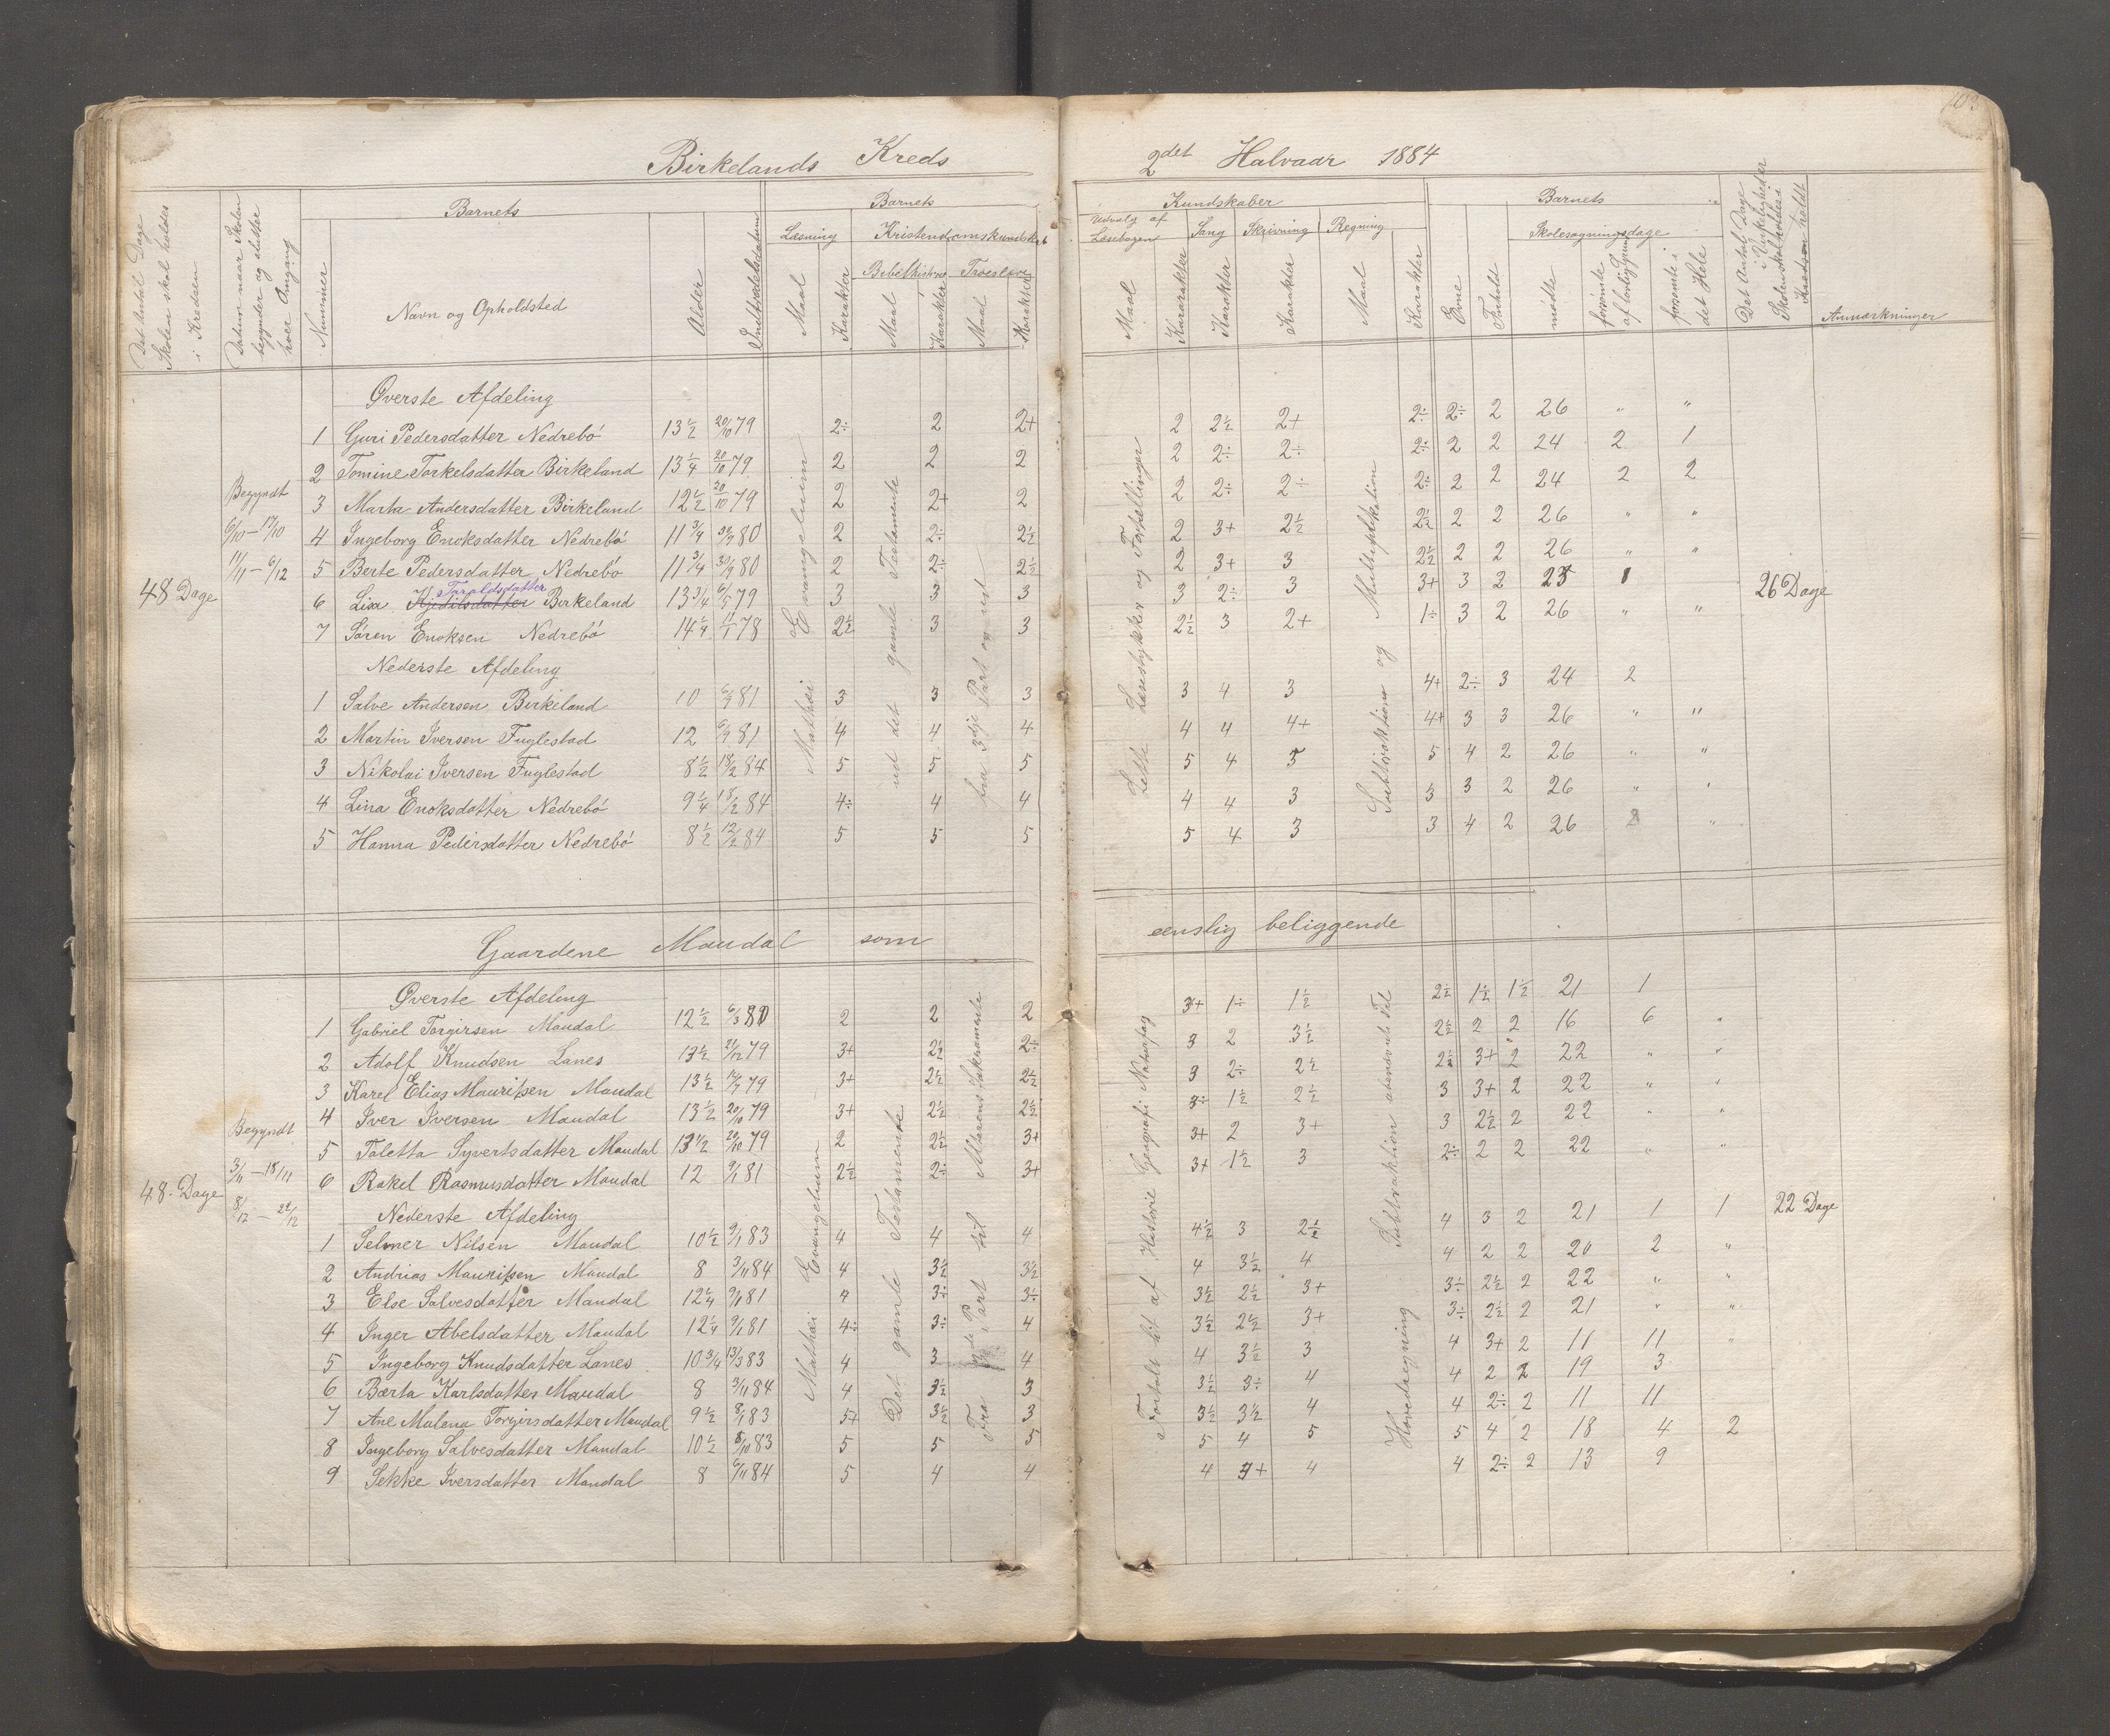 Birkelands Kreds 2det Halvaar 1884
103
Det Antal Dage Skolen skal holdes i Kredsen
Datum naar Skolen begynder og slutter hver Omgang
Nummer
Barnets
Navn og Opholdsted
Alder
Indtrædelsesdatum
Barnets
Læsning
Maal
Karakter
Kristendomskundskab
Bibelhistorie
Maal
Karakter
Troeslære
Maal
Karakter
Kundskaber
Udvalg af Læsebogen
Maal
Karakter
Sang
Karakter
Skrivning
Karakter
Regning
Maal
Karakter
Barnets
Evne
Forhold
Skolesøgningsdage
mødte
forsømte af lovlig Grund
forsømte i det Hele
Det Antal Dage Skolen i Virkeligheden er holdt
Anmærkninger
48 Dage
Begyndt
6/10 – 17/10
11/11 – 6/12
Øverste Afdeling
1 Guri Pedersdatter Nedrebö 13 1/2 20/10 79 2÷ 2 2+ 2 2 1/2 2+ 2÷ 2÷ 2 26 " "
2 Tomine Torkelsdatter Birkeland 13 1/4 20/10 79 2 2 2 2 2÷ 2÷ 2÷ 2 2 24 2 1
3 Marta Andersdatter Birkeland 12 1/2 20/10 79 2 2+ 2 2 2÷ 2÷ 2÷ 2 2 24 2 2
4 Ingeborg Enoksdatter Nedrebö 11 3/4 30/9 80 2 2÷ 2 1/2 2 3+ 2 1/2 2 1/2 2 2 26 " "
5 Berte Pedersdatter Nedrebö 11 3/4 30/9 80 2 2÷ 2 1/2 2 3+ 3 2 1/2 2 2 26 " "
Taraldsdatter
6 Lisa Kjedilsdatter Birkeland 13 3/4 6/5 79 3 3 3 3 2÷ 3 3+ 3 2 25 1
7 Sören Enoksen Nedrebö 14 1/4 11/1 78 2 1/2 3 3 2 1/2 3 2+ 1÷ 3 2 26 " "
26 Dage
Nederste Afdeling
1 Salve Andersen Birkeland 10 6/9 81 3 3 3 3 4 3 4+ 2÷ 3 24 2
2 Martin Iversen Fuglestad 12 6/9 81 4 4 4 4 4 4+ 4+ 3 3 26 " "
3 Nikolai Iversen Fuglestad 8 1/2 18/2 84 5 5 5 5 4 5 5 4 2 26 " "
4 Lina Enoksdatter Nedrebö 9 1/4 18/2 84 4÷ 4 4 4 4 3 3 3 2 26 " "
5 Hanna Pedersdatter Nedrebö 8 1/2 12/2 84 5 5 5 5 4 3 3 4 2 26 "
Mathæi Evangelium
ud det gamle Testamente
fra 3die Part og ud
Lette Læsestykker og Fortællinger
Subtraktion og Multiplikation
Gaardene Maudal som eenslig beliggende
48 Dage
Begyndt
3/11 – 18/11
8/12 – 22/12
Øverste Afdeling
1 Gabriel Torgirsen Maudal 12 1/2 6/3 80 2 2 2 3+ 1÷ 1 1/2 2 1/2 1 1/2 1 1/2 21 1
2 Adolf Knudsen Lanes 13 1/2 21/12 79 3+ 2 1/2 2÷ 3 2 3 1/2 2 1/2 2 2 16 6 "
3 Karel Elias Mauritsen Maudal 13 1/2 79 3+ 2 1/2 2 1/2 3 2÷ 2 1/2 2 1/2 3+ 2 22 " "
4 Iver Iversen Maudal 13 1/2 20/10 79 3+ 2 1/2 2 1/2 3÷ 1 1/2 2 1/2 3 3+ 2 22 " "
5 Taletta Syvertsdatter Maudal 13 1/2 20/10 79 2 2 1/2 3+ 3+ 2 3+ 3 2 1/2 2 22 " "
6 Rakel Rasmusdatter Maudal 12 9/1 81 2 1/2 2÷ 3+ 3+ 1 1/2 3 2÷ 2 2 22 " "
Nederste Afdeling
1 Selmer Nilsen Maudal 10 1/2 9/1 83 4 4 4 4 1/2 3 2 1/2 4 3 2 21 1 1
22 Dage
2 Andrias Mauritsen Maudal 8 3/11 84 4 3 1/2 3 1/2 4 3 1/2 4 4 2 2 20 2 "
3 Else Salvesdatter Maudal 12 1/4 9/1 81 4 3÷ 3÷ 3 1/2 2 1/2 3+ 3÷ 2 1/2 2 22 " "
4 Inger Abelsdatter Maudal 12 1/4 9/1 81 4÷ 3÷ 4 3 1/2 2 1/2 3+ 3÷ 2 1/2 2 21 " "
5 Ingeborg Knudsdatter Lanes 10 3/4 13/3 83 4 3 4 4 3 1/2 3 4 3+ 2 11 11 "
6 Bærta Karlsdatter Maudal 8 3/11 84 4 3 1/2 3 3 1/2 3÷ 4 4 2 2 19 3
7 Ane Malena Torgirsdatter Maudal 9 1/2 8/1 83 5+ 3 1/2 3 3 1/2 3 1/2 4 4 2÷ 2 11 11
8 Ingeborg Salvesdatter Maudal 10 1/2 8/10 83 5 5 5 5 4 5 5 4 2 18 4 2
9 Sekke Iversdatter Maudal 8 6/11 84 5 4 4 4 4+ 4 4 2÷ 2 13 9
Mathæi Evangelium
Det gamle Testamente
Fra Part til Alterens Sakramente
Fortalt lit af Historie Geografi Naturfag
Hovedregning Subtraktion